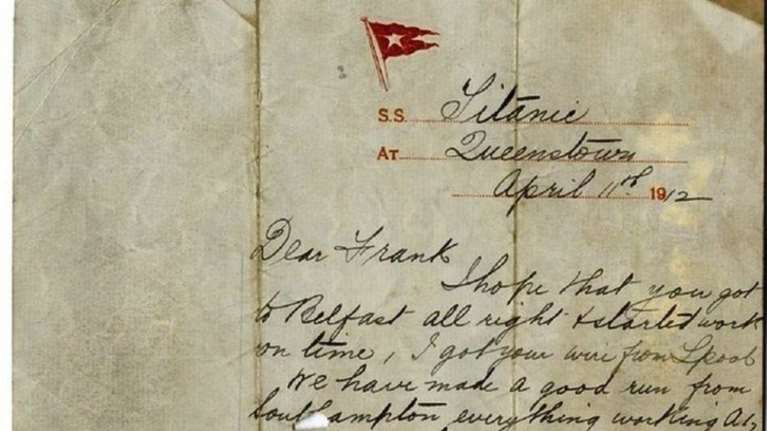 S.S. Titanic
At Queenstown
April 11th 1912
Dear Frank
I hope that you got
to Belfast all right & started work
on time, I got your wire from Lpool
We have made a good run from
Southampton everything working A1,